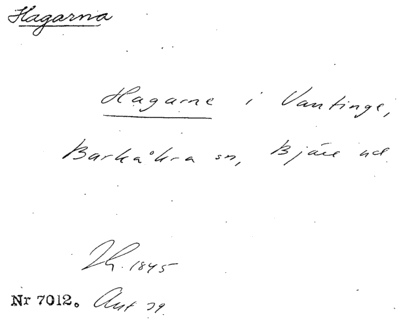 Hagarna
Hagarne i Vantinge,
Barkåkra sn, Bjäre hd
Th. 1845
Nr 7012. Ant 29.